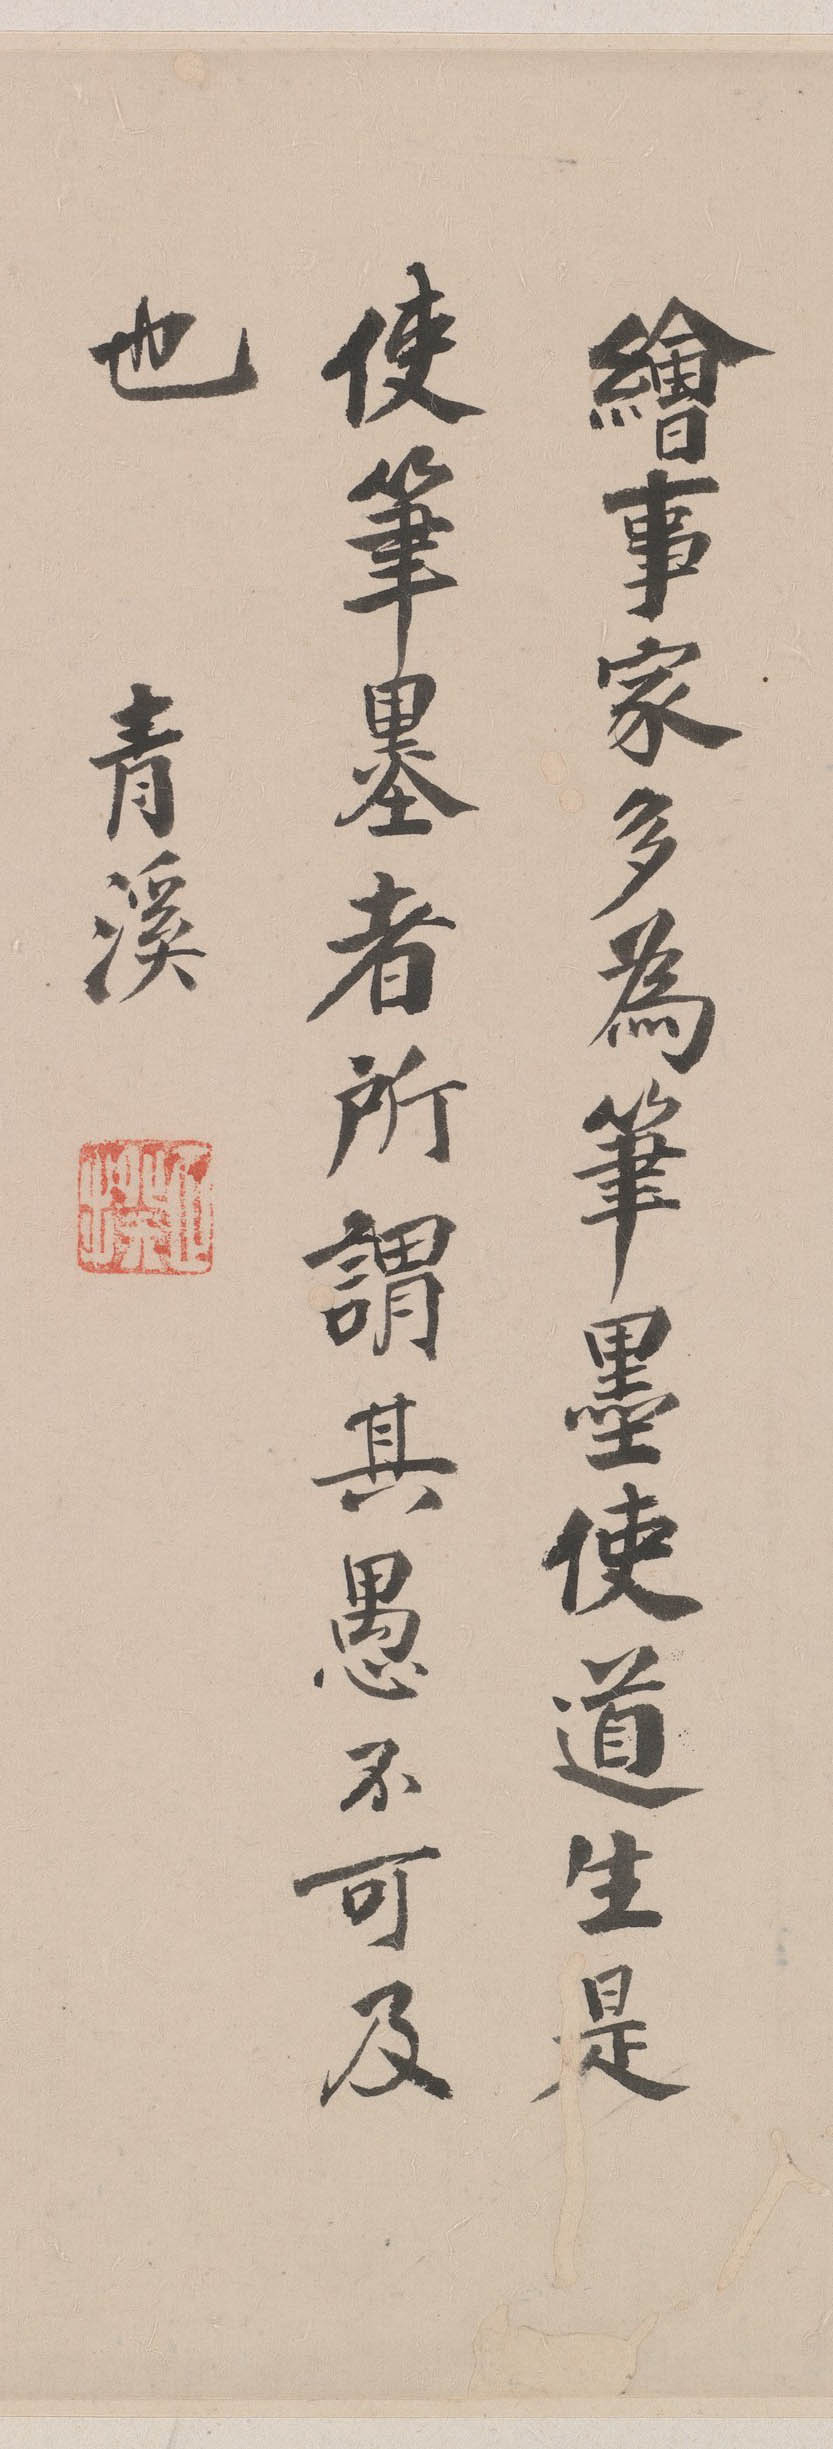 繪事家多為筆墨使道生是
使筆墨者所謂其愚不可及
也 青溪